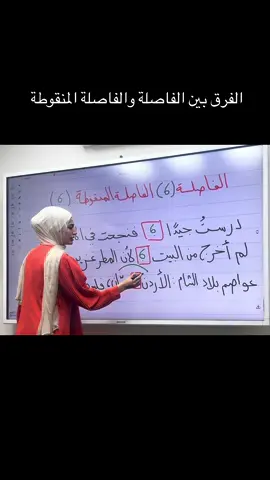 الفرق بين الفاصلة والفاصلة المنقوطة
الفاصلة (،) الفاصلة المنقوطة (؛)
درستُ جيدًا ؛ فنجحت في
لم أخرج من البيت ؛ لأن المطر غزير
عواصم بلاد الشام : الأردن